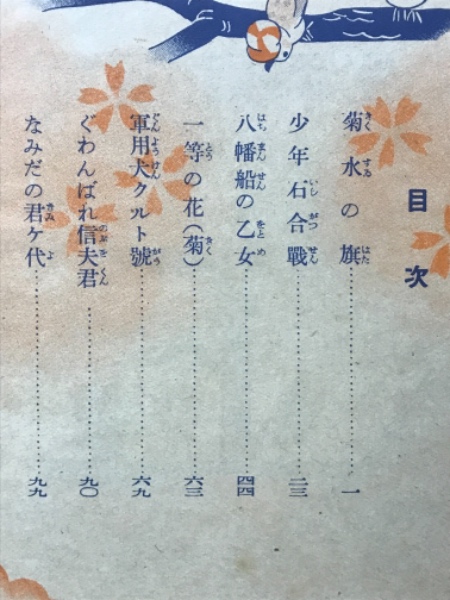 目次
菊水の旗……………一
少年石合戰……………二三
八幡船の乙女……………四四
一等の花(菊)……………六三
軍用犬クルト號……………六九
ぐわんばれ信夫君……………九〇
なみだの君ケ代……………九九